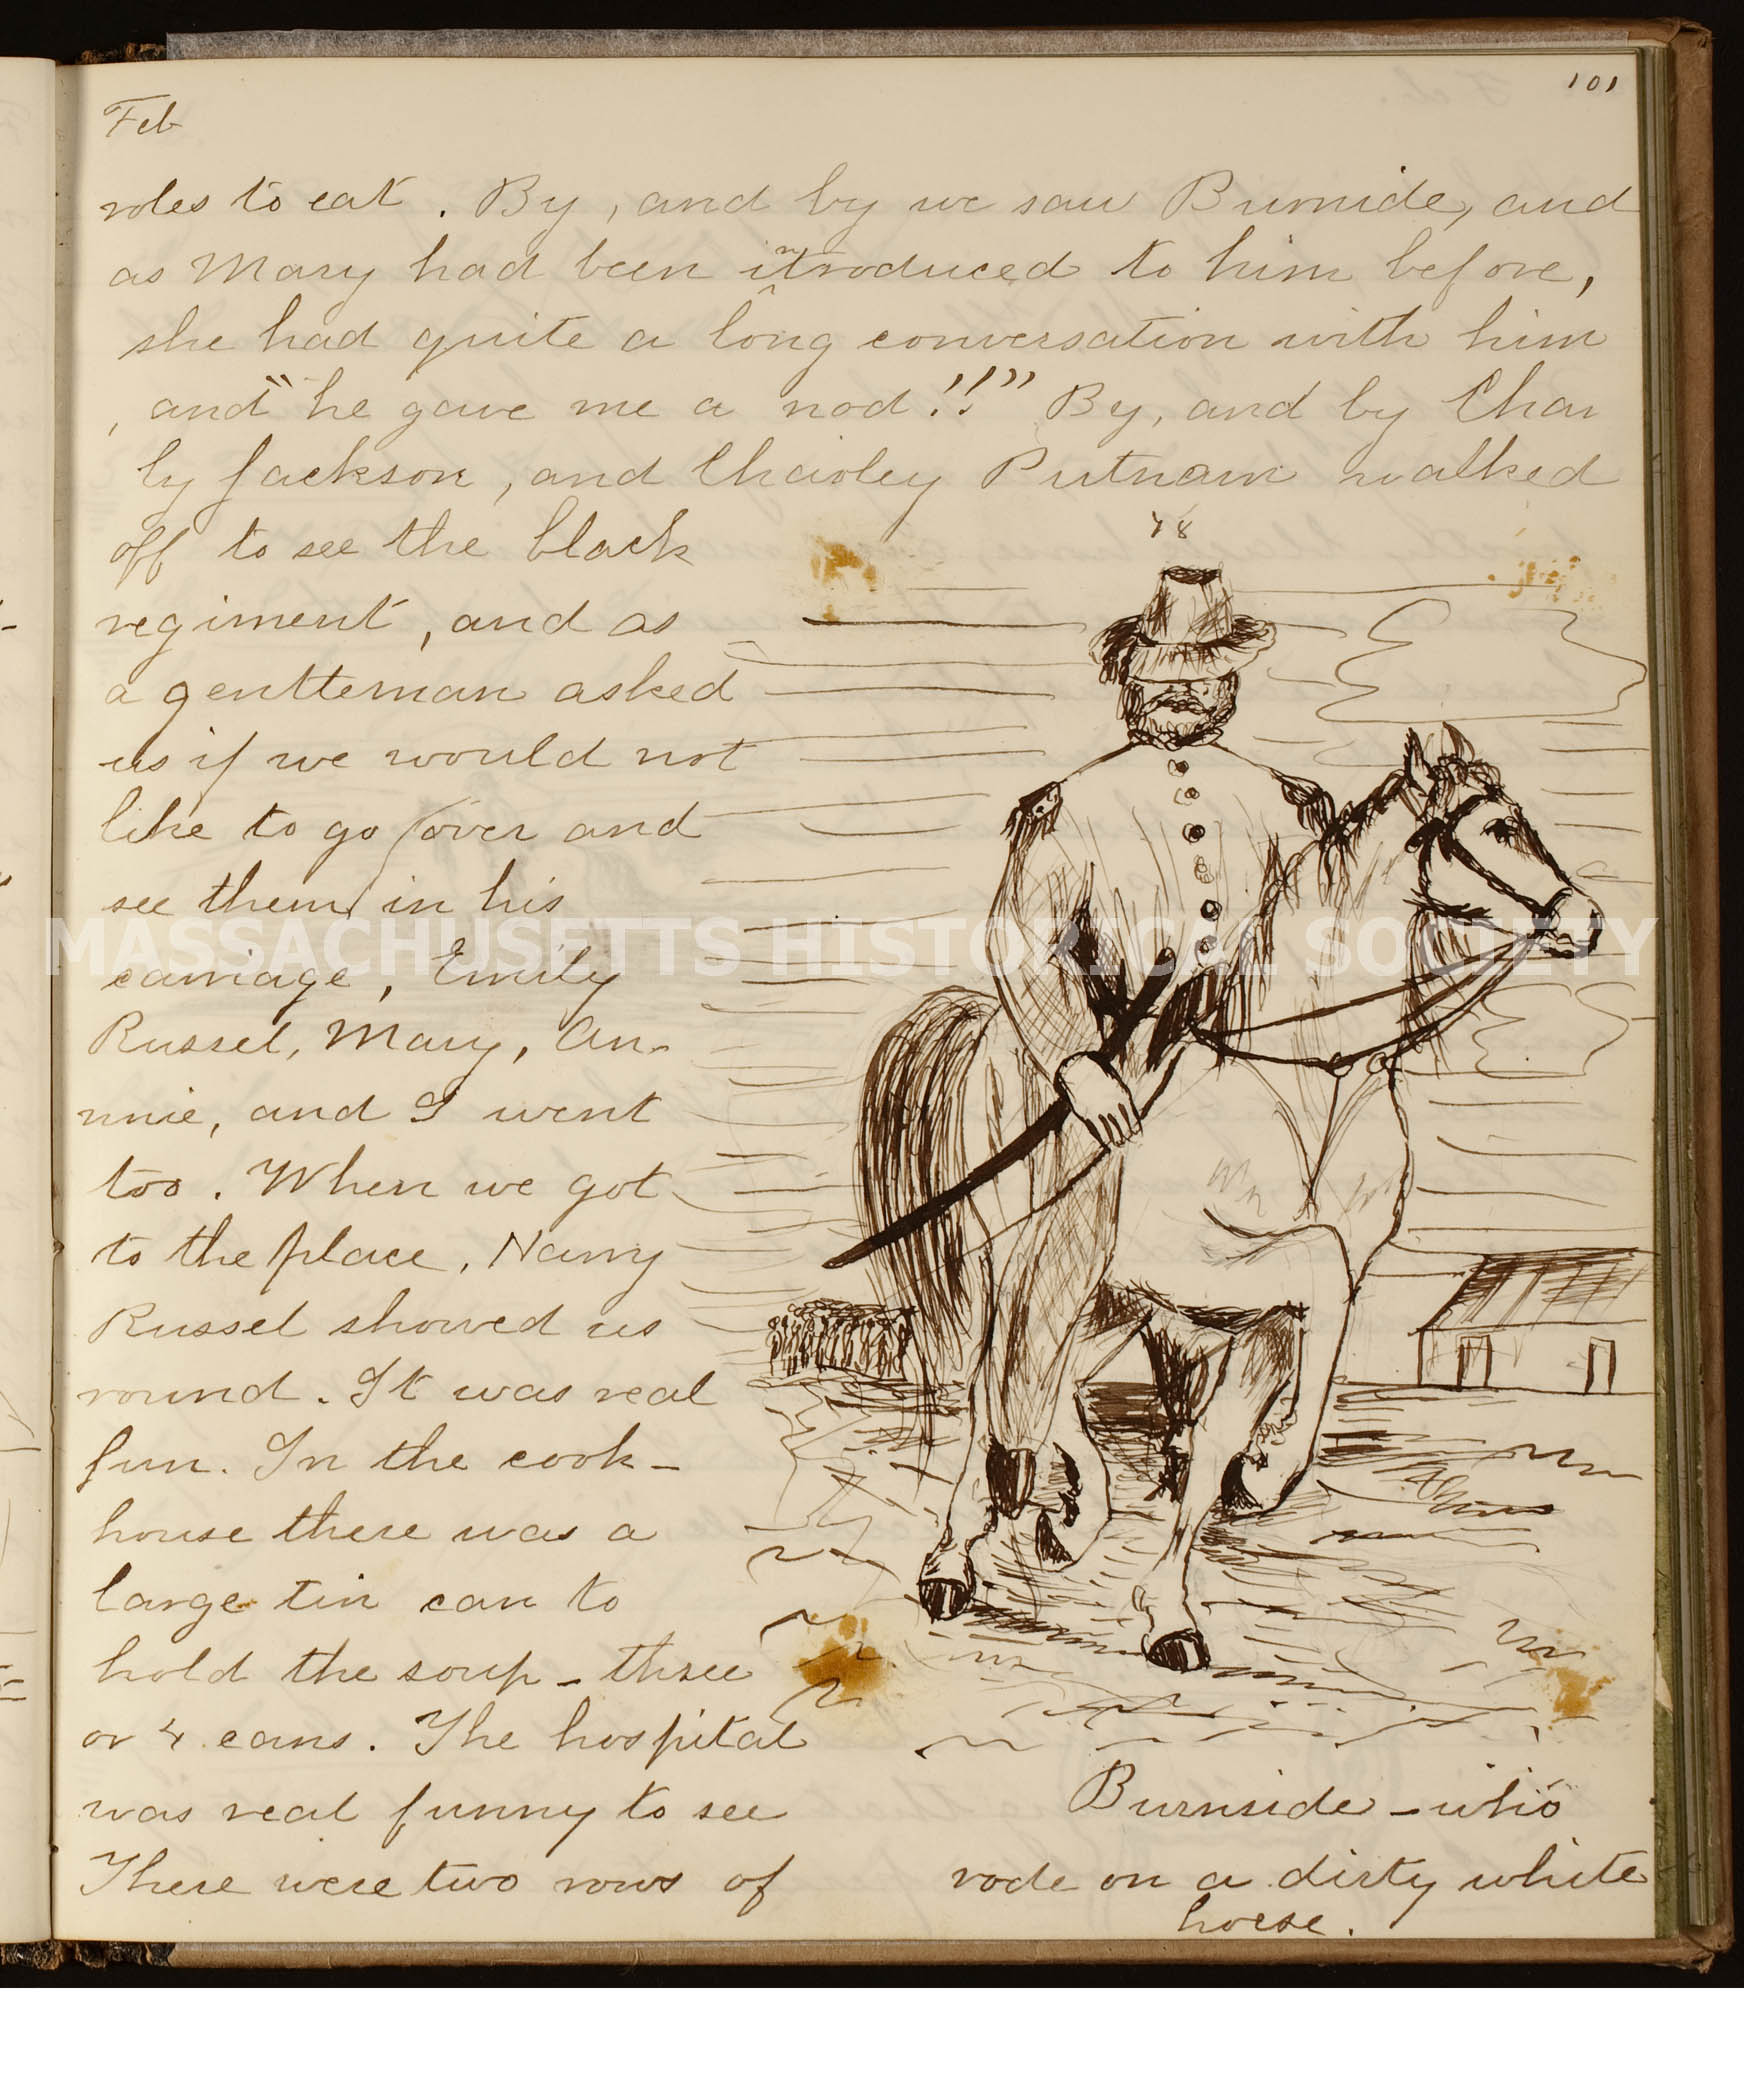 101
Feb
roles to eat. By, and by we saw Burnside, and
as Mary had been introduced to him before,
she had quite a long conversation with him
, and "he gave me a nod!!" By, and by Char
ly Jackson, and Charley Putnam walked
off to see the black
regiment, and as
a gentleman asked
us if we would not
like to go (over and
see them) in his
carriage, Emily
Russel, Mary, An-
nnie, and I went
too. When we got
to the place, Nanny
Russel showed us
round. It was real
fun. In the cook-
house there was a
large tin can to
hold the soup - three
or 4 cans. The hospital
was real funny to see
There were two rows of
78
Burnside - who
rode on a dirty white
horse.
MASSACHUSETTS HISTORICAL SOCIETY